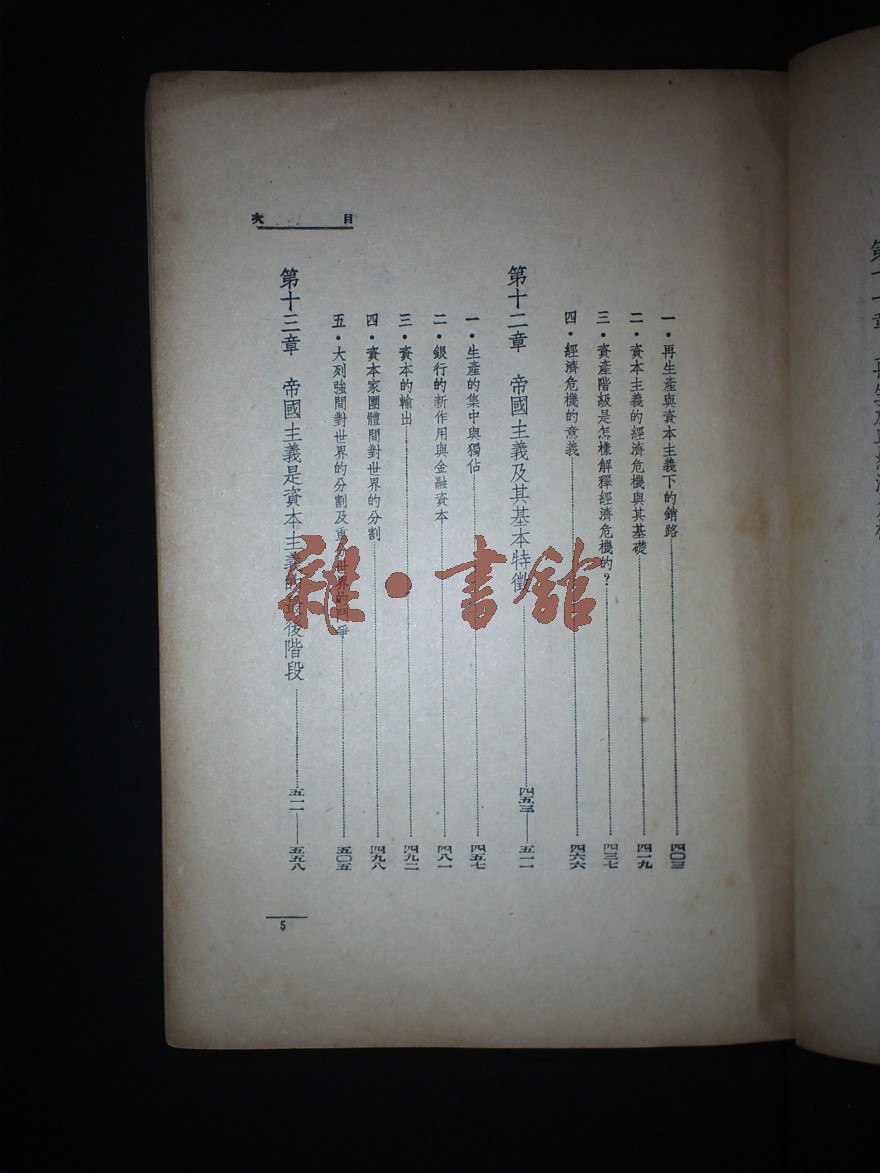 目次
一・再生產與資本主義下的銷路……四〇三
二・資本主義的經濟危機與其基礎……四一九
三・資產階級是怎樣解釋經濟危機的？……四三七
四・經濟危機的意義……四六六
第十二章　帝國主義及其基本特徵……四五三——五一一
一・生產的集中與獨佔……四五七
二・銀行的新作用與金融資本……四八一
三・資本的輸出……四九二
四・資本家團體間對世界的分割……四九八
五・大列強間對世界的分割及重分世界的鬥爭……五〇五
第十三章　帝國主義是資本主義的最後階段……五一一——五五八
5
雜・書館